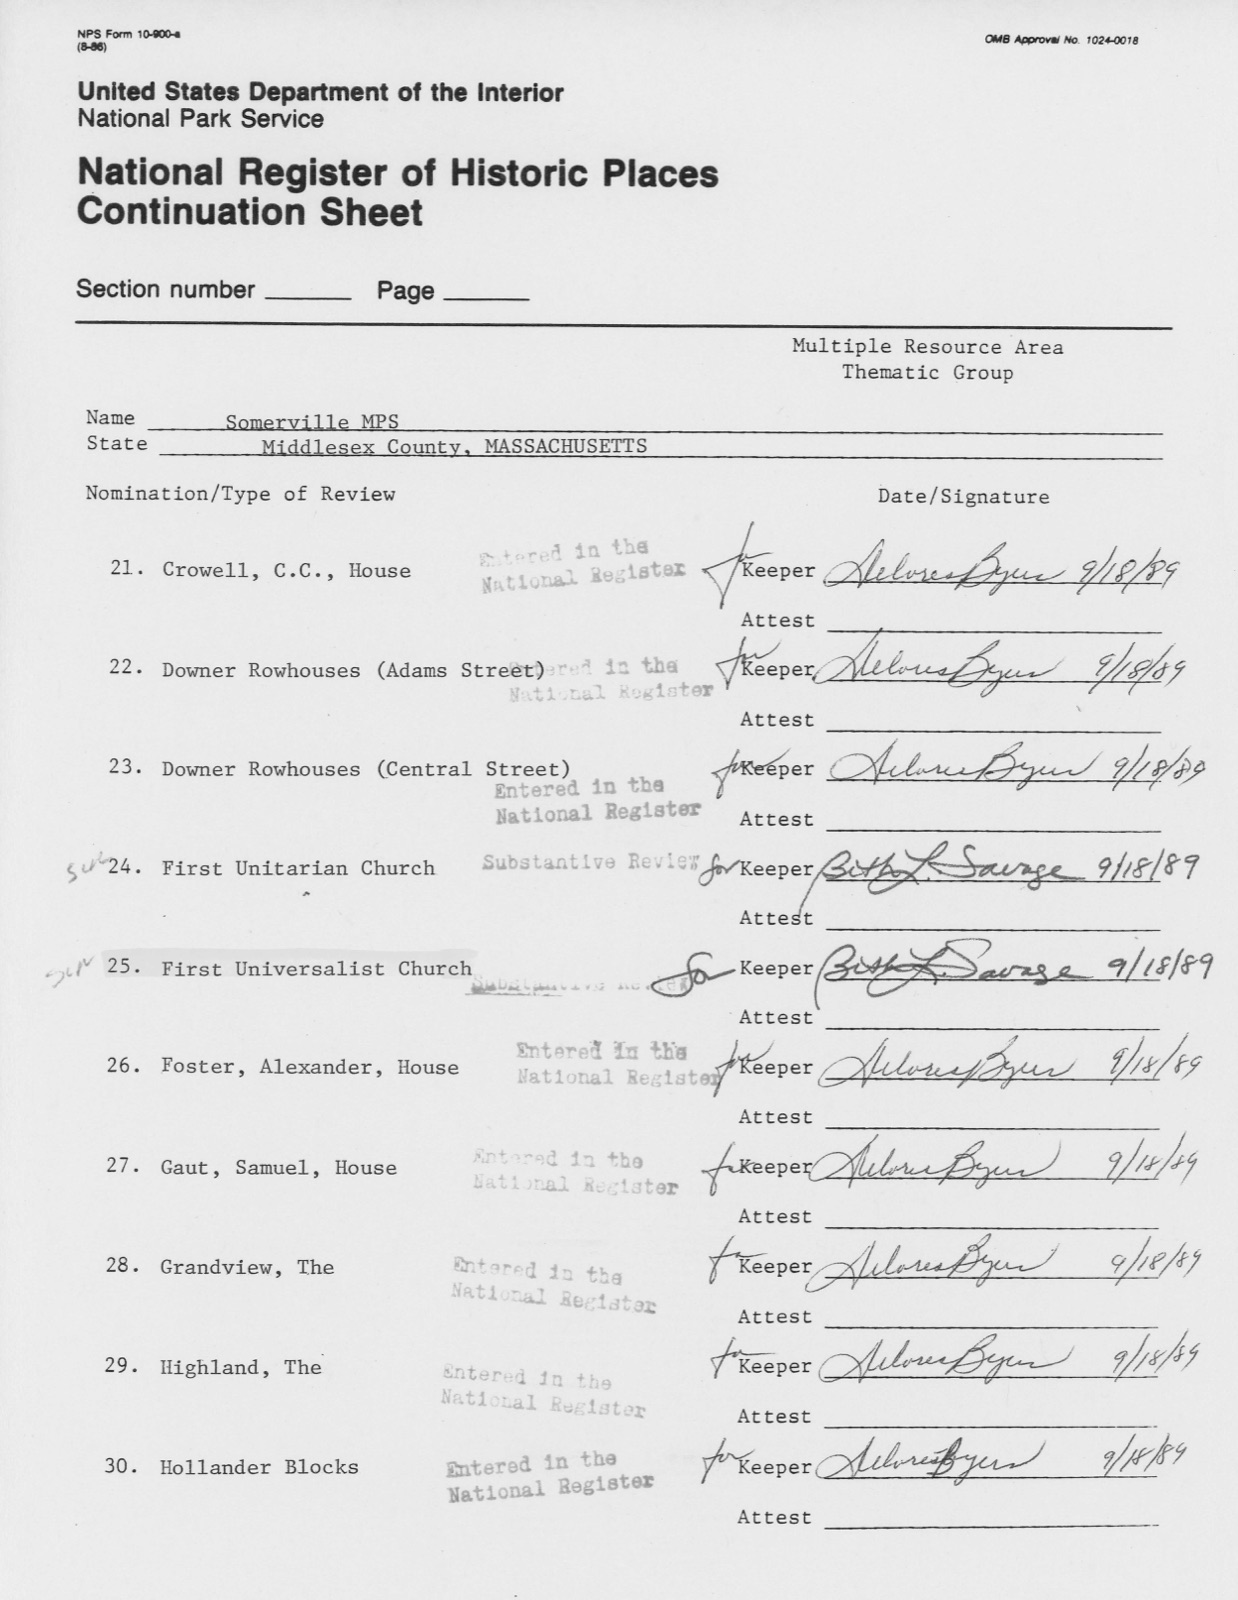 NPS Form 10-900-a
(8-86)
OMB Approval No. 1024-0018
United States Department of the Interior
National Park Service
National Register of Historic Places
Continuation Sheet
Section number ______ Page ______
Multiple Resource Area
Thematic Group
Name Somerville MPS
State Middlesex County, MASSACHUSETTS
Nomination/Type of Review Date/Signature
21. Crowell, C.C., House Entered in the National Register for Keeper Delores Byers 9/18/89
Attest
22. Downer Rowhouses (Adams Street) Entered in the National Register for Keeper Delores Byers 9/18/89
Attest
23. Downer Rowhouses (Central Street) for Keeper Delores Byers 9/18/89
Entered in the
National Register
Attest
24. First Unitarian Church Substantive Review for Keeper Beth L. Savage 9/18/89
Attest
25. First Universalist Church Substantive Review for Keeper Beth L. Savage 9/18/89
Attest
26. Foster, Alexander, House Entered in the National Register for Keeper Delores Byers 9/18/89
Attest
27. Gaut, Samuel, House Entered in the National Register for Keeper Delores Byers 9/18/89
Attest
28. Grandview, The Entered in the National Register for Keeper Delores Byers 9/18/89
Attest
29. Highland, The Entered in the National Register for Keeper Delores Byers 9/18/89
Attest
30. Hollander Blocks Entered in the National Register for Keeper Delores Byers 9/18/89
Attest